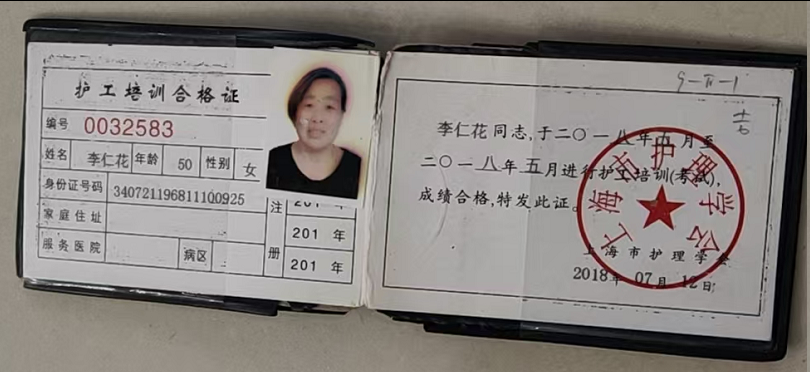 护工培训合格证
编号 0032583
姓名 李仁花 年龄 50 性别 女
身份证号码 340721196811100925
家庭住址
服务医院 病区
注册
201 年
201 年
201 年
李仁花同志,于二〇一八年五月至
二〇一八年五月进行护工培训(考试),
成绩合格,特发此证。
上海市护理学会
2018年 07月 12日
上海市护理学会